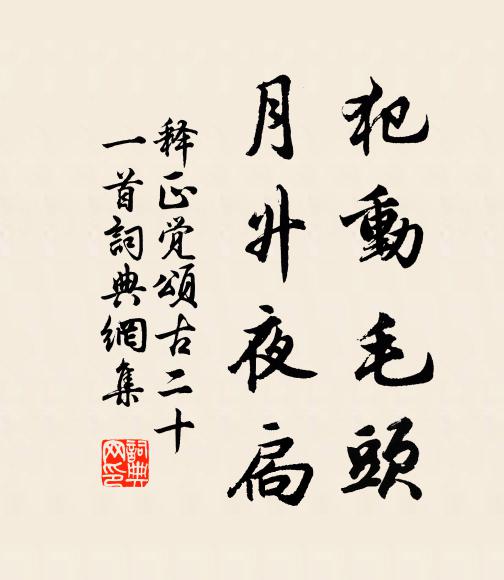 犯動毛頭
月升夜扃
释正觉頌古二十
一首詞典網集
詞典网印